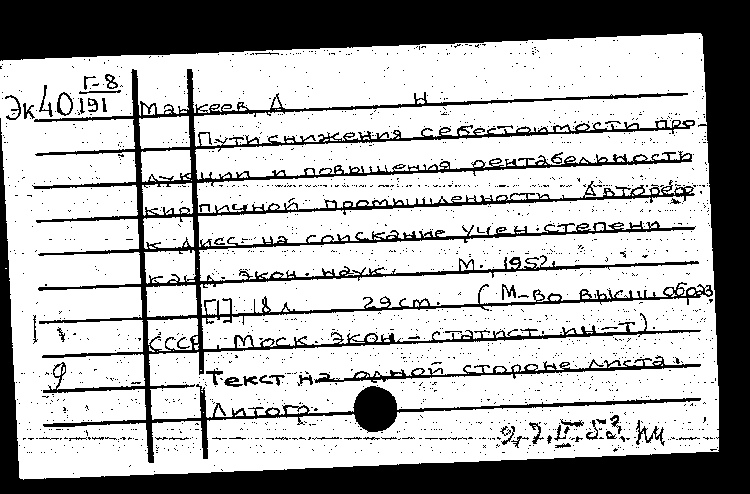 Эк40 Г-8
191
Манкеев, Д Н
Пути снижения себестоимости про-
дукции и повышения рентабельности
кирпичной промышленности. Автореф.
к дисс. на соискание учен. степени
канд. экон. наук. М., 1952.
[1], 18 л. 29 ст. (М-во высш. образ.
СССР, Моск. экон.-статист. ин-т).
9 Текст на одной стороне листа.
Литогр.